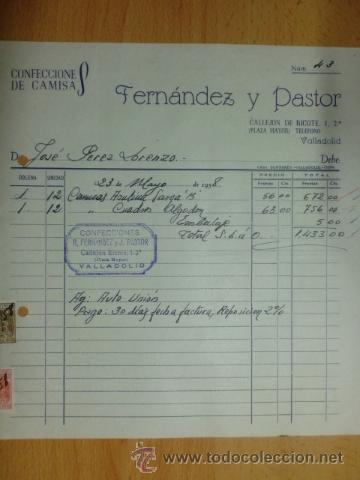 CONFECCIONES
DE CAMISAS
Núm. 43
Fernández y Pastor
CALLEJON DE RICOTE, 1, 2º
(PLAZA MAYOR) TELEFONO
Valladolid
D. José Perez Lorenzo.- Debe:
23 de Mayo de 1958.
DOCENA UNIDAD PRECIO TOTAL
Pesetas Cts. Pesetas Cts.
1 12 Camisas "B" 56 00 672 00
1 12 " Cuadros Algodon 63 00 756 00
Embalaje 5 00
Total S. é ú O. 1.433 00
CONFECCIONES
R. FERNANDEZ y J. PASTOR
Callejón Ricote, 1-2º
(Plaza Mayor)
VALLADOLID
Ag: Auto Unión
Pago: 30 días fecha factura, Reposicion 2%
todocoleccion.net